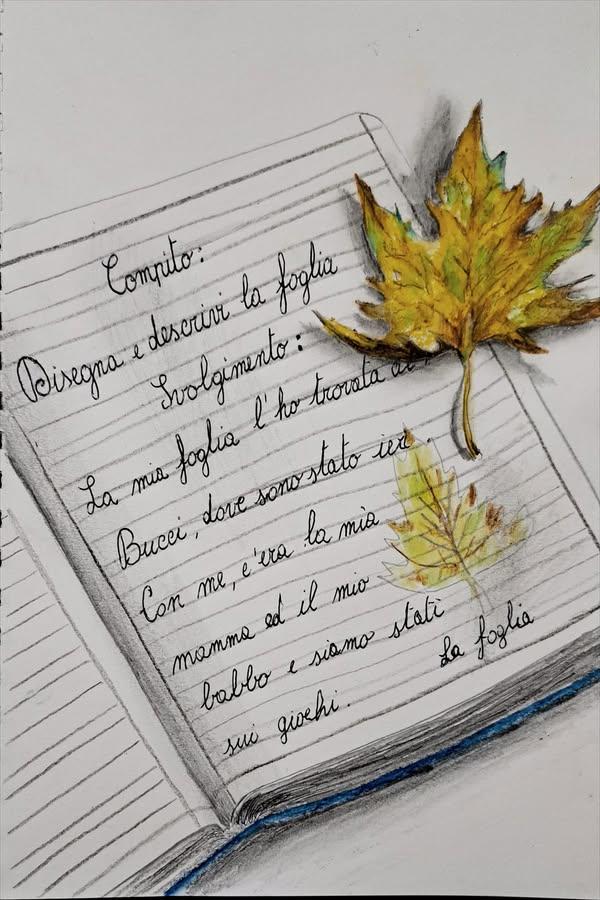 Compito:
Disegna e descrivi la foglia
Svolgimento:
La mia foglia l'ho trovata
Bucci, dove sono stato ieri.
Con me, c'era la mia
mamma ed il mio
babbo e siamo stati
sui giochi.
La foglia